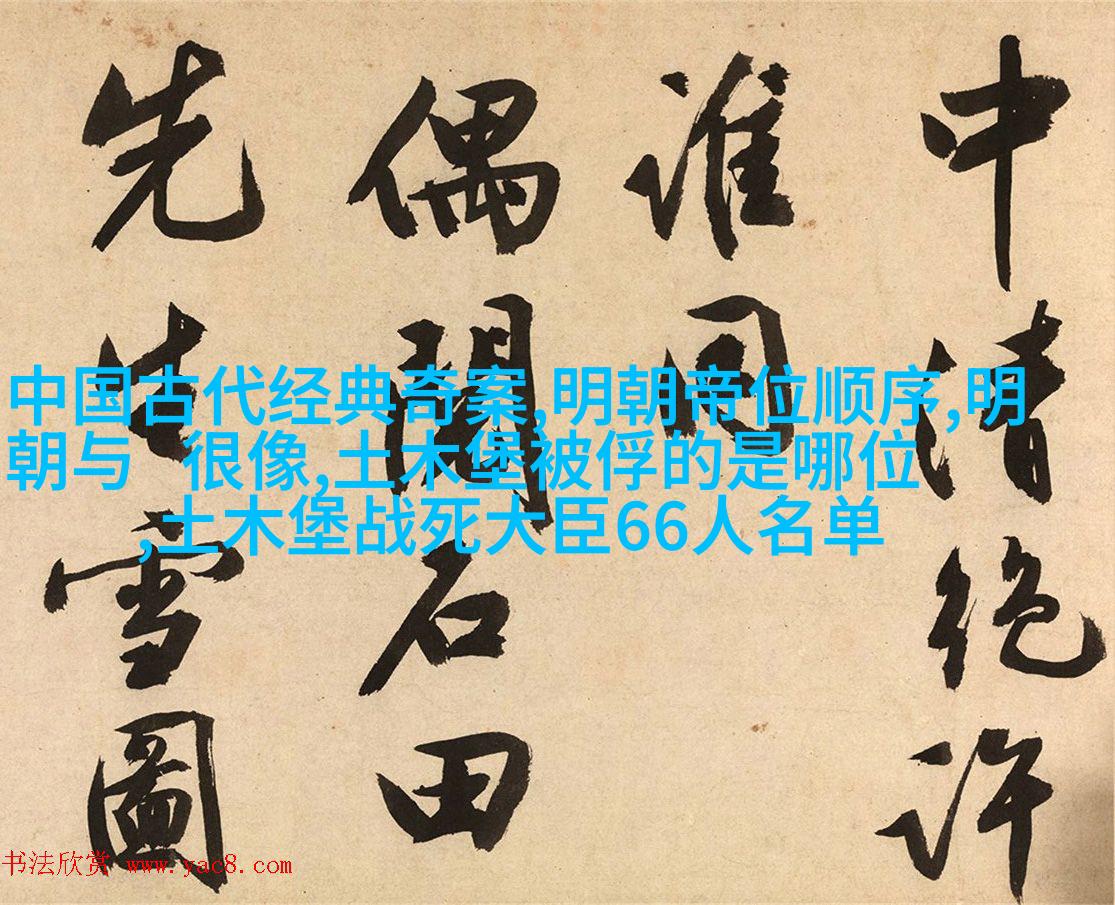 中清絶許
誰同
偶閱石田
先生雪圖
中国古代经典奇案,明朝帝位顺序,明
朝与 很像,土木堡被俘的是哪位
,土木堡战死大臣66人名单
书法欣赏 www.yac8.com